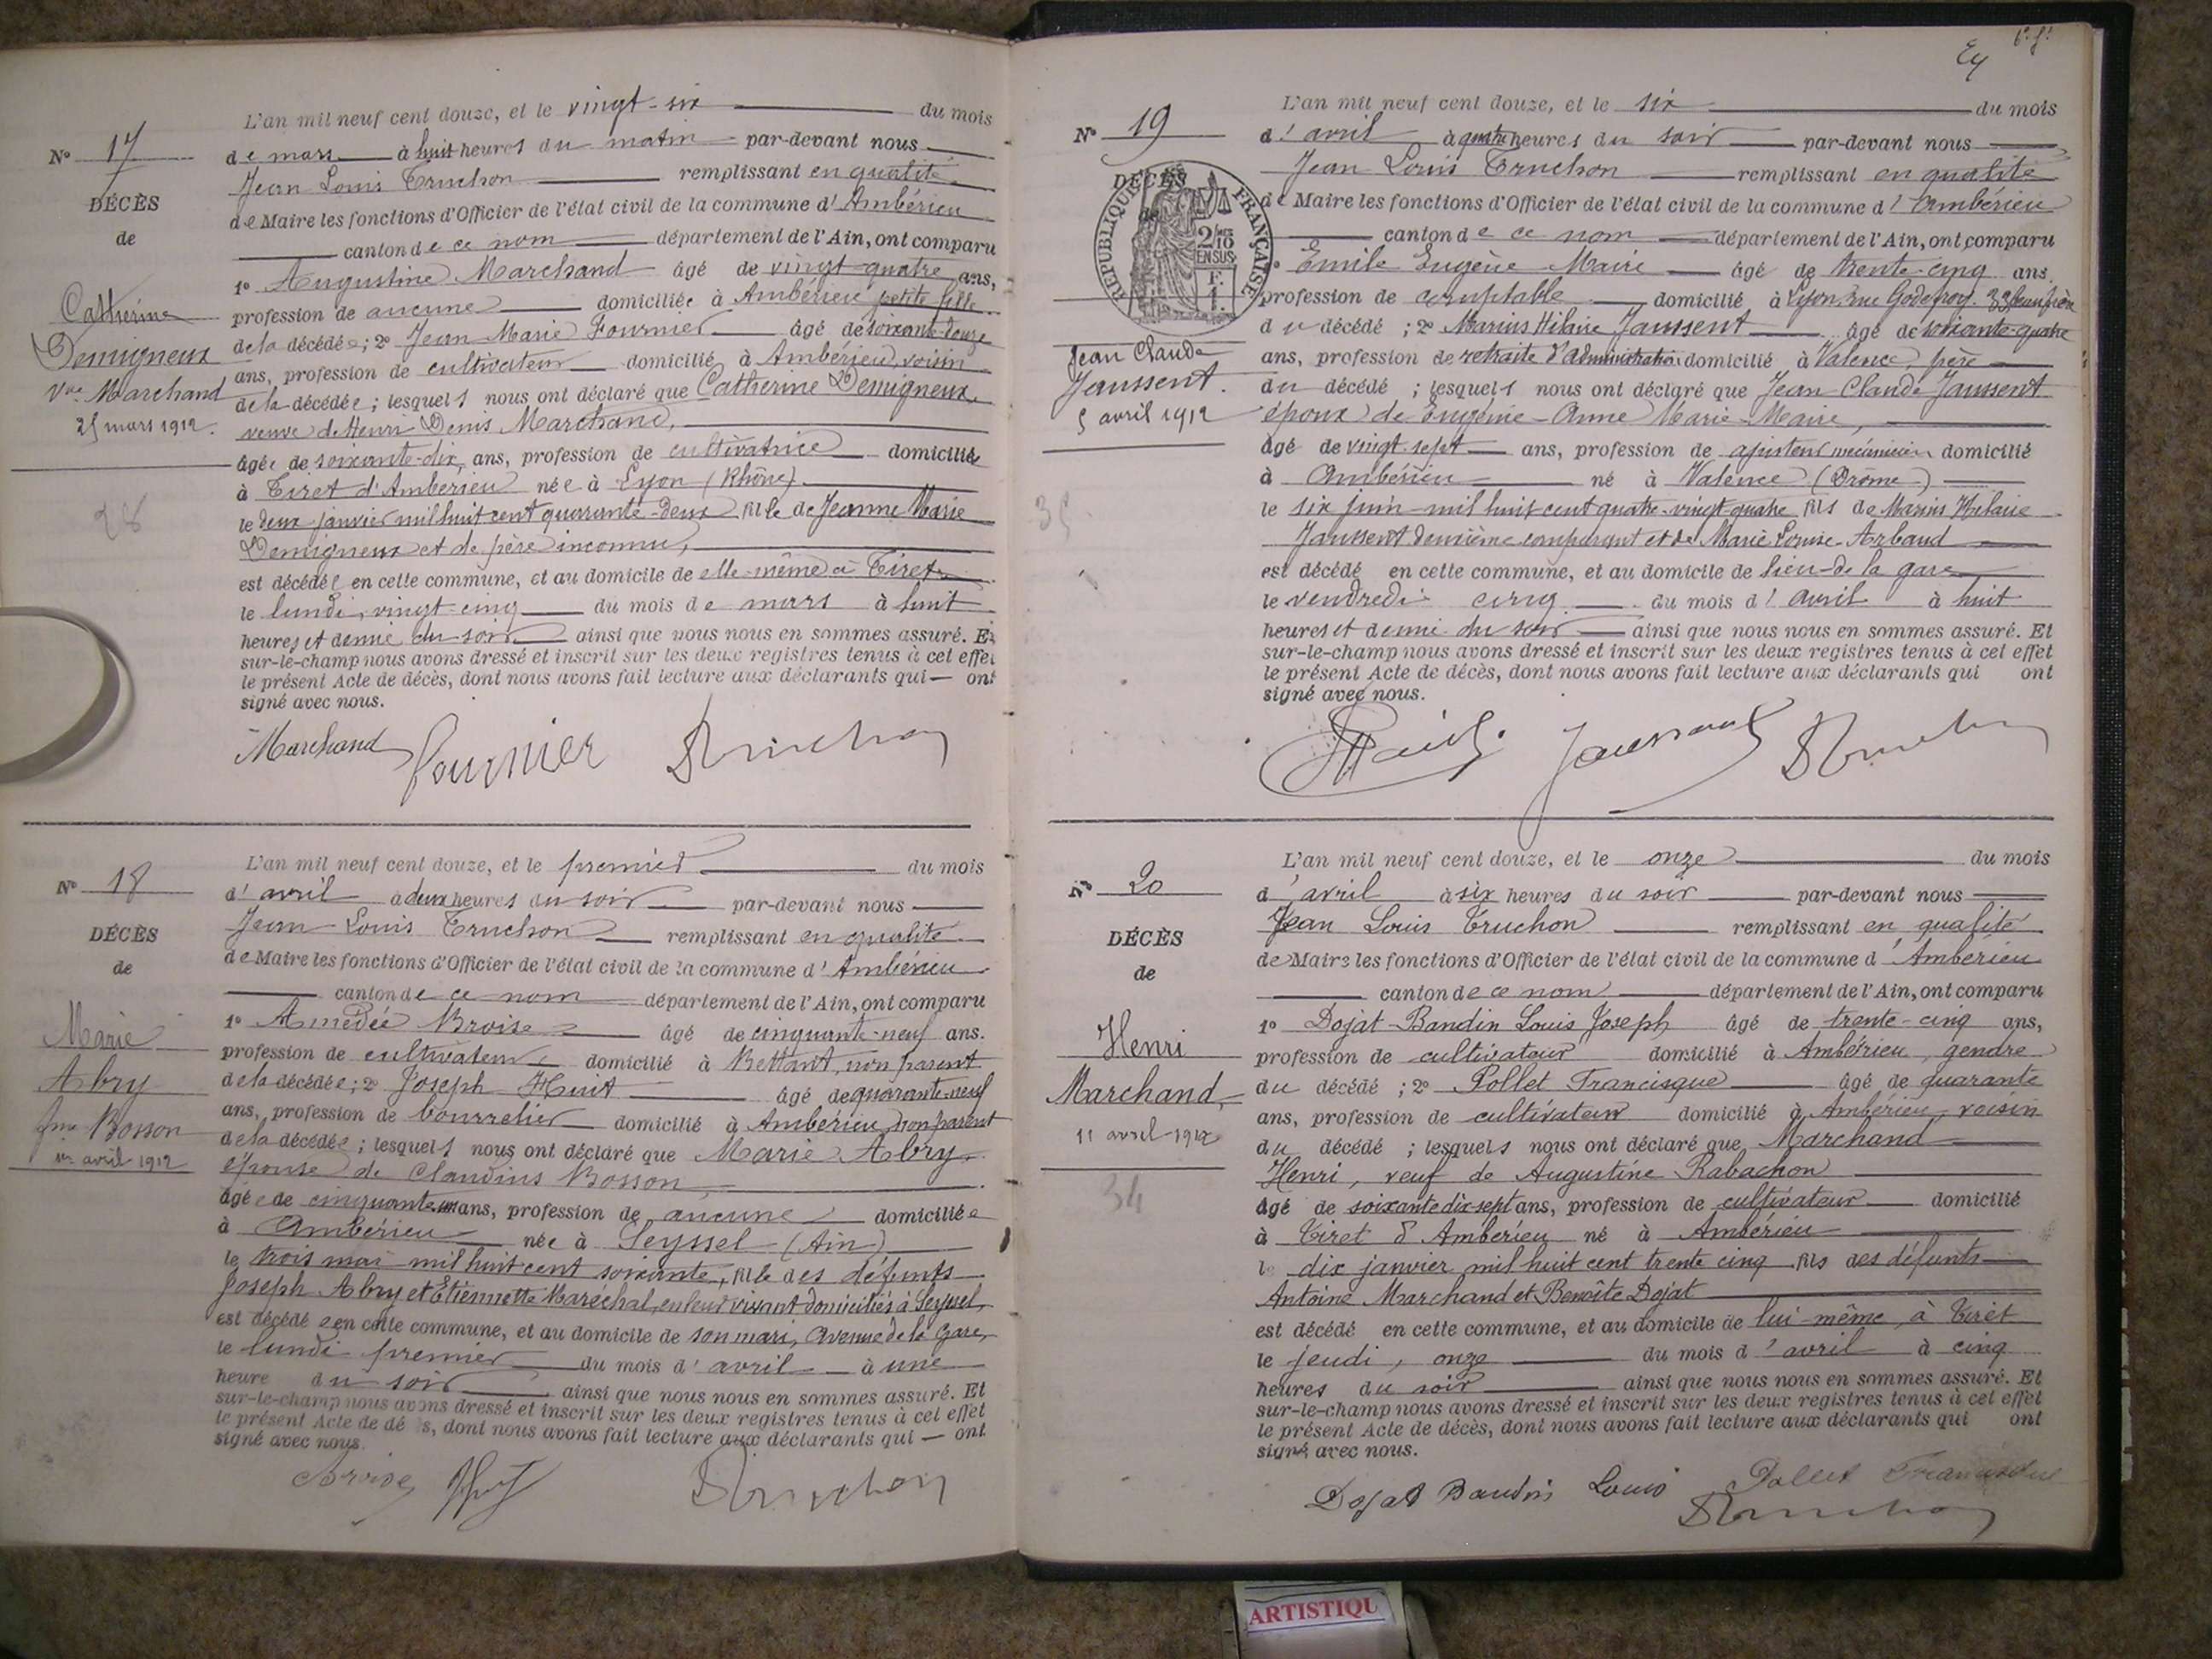 L'an mil neuf cent douze, et le vingt-six du mois
No 17
de mars à huit heures du matin par-devant nous
Jean Louis Truchon remplissant en qualité
DÉCÈS
de Maire les fonctions d'Officier de l'état civil de la commune d'Ambérieu
de
canton de ce nom département de l'Ain, ont comparu
1o Augustine Marchand âgé de vingt-quatre ans,
Catherine
profession de aucune domiciliée à Ambérieu petite fille
Demigneux
de la décédée; 2o Jean Marie Fournier âgé de soixante-douze
ans, profession de cultivateur domicilié à Ambérieu, voisin
Vve Marchand
de la décédée; lesquels nous ont déclaré que Catherine Demigneux
25 mars 1912.
veuve de Henri Denis Marchand,
âgée de soixante-dix ans, profession de cultivatrice domiciliée
à Tiret d'Ambérieu née à Lyon (Rhône)
28
le deux janvier mil huit cent quarante-deux fille de Jeanne Marie
Demigneux et de père inconnu,
est décédée en cette commune, et au domicile de elle-même à Tiret
le lundi, vingt-cinq du mois de mars à huit
heures et demie du soir ainsi que nous nous en sommes assuré. Et
sur-le-champ nous avons dressé et inscrit sur les deux registres tenus à cet effet
le présent Acte de décès, dont nous avons fait lecture aux déclarants qui — ont
signé avec nous.
Marchand Fournier Truchon
L'an mil neuf cent douze, et le premier du mois
No 18
d'avril à deux heures du soir par-devant nous
Jean Louis Truchon remplissant en qualité
DÉCÈS
de Maire les fonctions d'Officier de l'état civil de la commune d'Ambérieu
de
canton de ce nom département de l'Ain, ont comparu
1o Amédée Broise âgé de cinquante-neuf ans.
Marie
profession de cultivateur domicilié à Bettant, non parent
Abry
de la décédée; 2o Joseph Huit âgé de quarante-neuf
ans, profession de bourrelier domicilié à Ambérieu, non parent
fme Bosson
de la décédée; lesquels nous ont déclaré que Marie Abry
1er avril 1912
épouse de Claudius Bosson,
âgée de cinquante un ans, profession de aucune domiciliée
à Ambérieu née à Seyssel (Ain)
le trois mai mil huit cent soixante, fille des défunts
Joseph Abry et Etiennette Maréchal, en leur vivant domiciliés à Seyssel,
est décédée en cette commune, et au domicile de son mari, Avenue de la Gare,
le lundi premier du mois d'avril à une
heure du soir ainsi que nous nous en sommes assuré. Et
sur-le-champ nous avons dressé et inscrit sur les deux registres tenus à cet effet
le présent Acte de décès, dont nous avons fait lecture aux déclarants qui — ont
signé avec nous.
Broise Huit Truchon
L'an mil neuf cent douze, et le six du mois
No 19
d'avril à quatre heures du soir par-devant nous
Jean Louis Truchon remplissant en qualité
DÉCÈS
de
RÉPUBLIQUE FRANÇAISE
2/10 EN SUS
F. 1.
de Maire les fonctions d'Officier de l'état civil de la commune d'Ambérieu
canton de ce nom département de l'Ain, ont comparu
Emile Eugène Maire âgé de trente-cinq ans,
profession de comptable domicilié à Lyon, rue Godefroy. 33 beau-frère
du décédé; 2o Marius Hilaire Jaussent âgé de soixante-quatre
Jean Claude
ans, profession de retraité d'administration domicilié à Valence, père
Jaussent.
du décédé; lesquels nous ont déclaré que Jean Claude Jaussent
5 avril 1912
époux de Eugénie-Anne Marie Maire,
âgé de vingt-sept ans, profession de ajusteur mécanicien domicilié
à Ambérieu né à Valence (Drôme)
35
le six juin mil huit cent quatre-vingt-quatre fils de Marius Hilaire
Jaussent deuxième comparant et de Marie Louise Arbaud
est décédé en cette commune, et au domicile de lieu-de la gare
le vendredi cinq du mois d'avril à huit
heures et demie du soir ainsi que nous nous en sommes assuré. Et
sur-le-champ nous avons dressé et inscrit sur les deux registres tenus à cet effet
le présent Acte de décès, dont nous avons fait lecture aux déclarants qui ont
signé avec nous.
Maire Jaussent Truchon
L'an mil neuf cent douze, et le onze du mois
No 20
d'avril à six heures du soir par-devant nous
Jean Louis Truchon remplissant en qualité
DÉCÈS
de Maire les fonctions d'Officier de l'état civil de la commune d'Ambérieu
de
canton de ce nom département de l'Ain, ont comparu
1o Dojat-Bandin Louis Joseph âgé de trente-cinq ans,
Henri
profession de cultivateur domicilié à Ambérieu, gendre
Marchand,
du décédé; 2o Pollet Francisque âgé de quarante
ans, profession de cultivateur domicilié à Ambérieu, voisin
11 avril 1912
du décédé; lesquels nous ont déclaré que Marchand
Henri, veuf de Augustine Rabachon
34
âgé de soixante dix-sept ans, profession de cultivateur domicilié
à Tiret d'Ambérieu né à Ambérieu
le dix janvier mil huit cent trente cinq fils des défunts
Antoine Marchand et Benoîte Dojat
est décédé en cette commune, et au domicile de lui-même, à Tiret
le jeudi, onze du mois d'avril à cinq
heures du soir ainsi que nous nous en sommes assuré. Et
sur-le-champ nous avons dressé et inscrit sur les deux registres tenus à cet effet
le présent Acte de décès, dont nous avons fait lecture aux déclarants qui ont
signé avec nous.
Dojat Bandin Louis Pollet Francisque
Truchon
ARTISTIQU